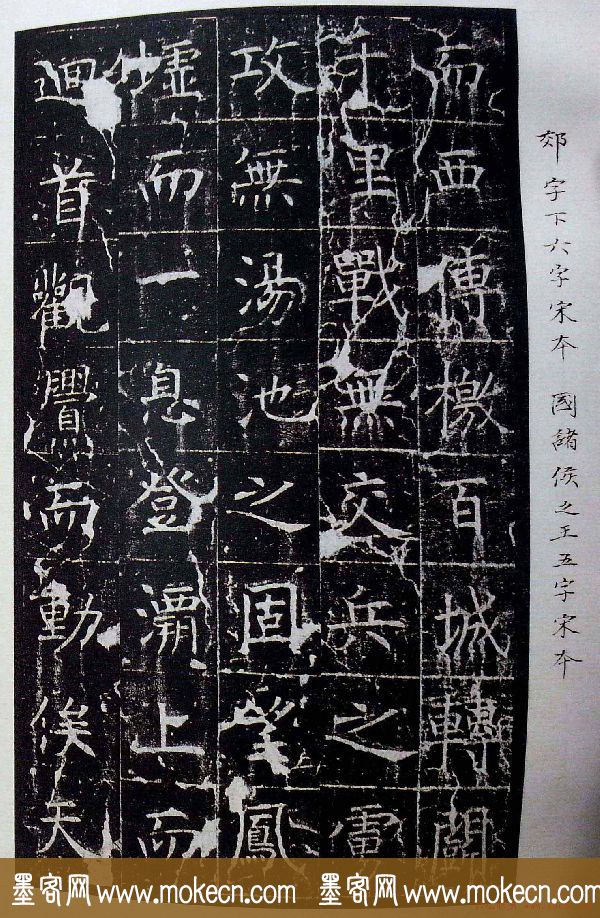 郊字下六字宋本 國諸侯之王五字宋本
而西傳檄百城轉鬪
千里戰無交兵之虜
攻無湯池之固望鳳
墟而一息登灞上而
迴首觀舋而動候天
墨客网 www.mokecn.com 墨客网 www.mokecn.com